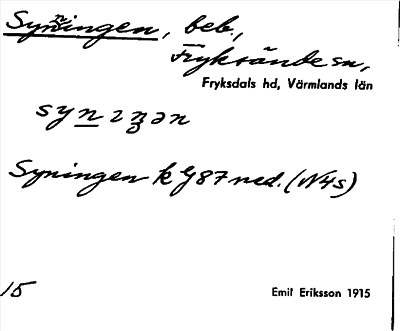 Syningen, beb.,
Fryksände sn,
Fryksdals hd, Värmlands län
Syningen k G87 ned. (N4s)
15
Emil Eriksson 1915